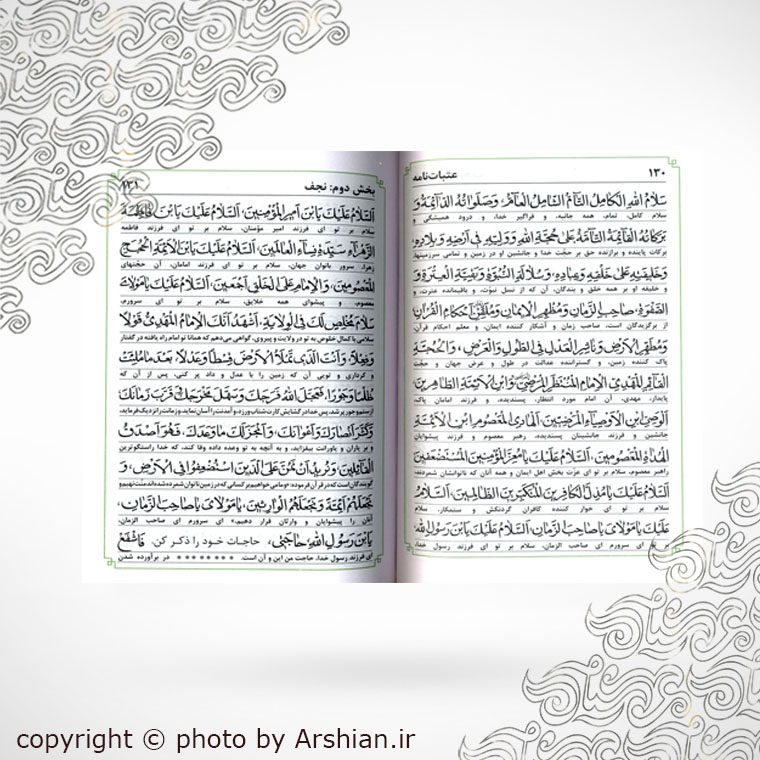 ۱۳۰ عتبات‌نامه
سَلامُ اللهِ الْكامِلُ التّامُّ الشّامِلُ الْعامُّ، وَ صَلَواتُهُ الدّائِمَةُ وَ
سلام کامل، تمام، همه جانبه، و فراگیر خدا، و درود همیشگی و
بَرَكاتُهُ الْقائِمَةُ التّامَّةُ عَلى حُجَّةِ اللهِ وَ وَلِيِّهِ في اَرْضِهِ وَ بِلادِهِ،
برکات پاینده و برازنده حق بر حجّت خدا و جانشین او در زمین و تمامی سرزمینها،
وَ خَليفَتِهِ عَلى خَلْقِهِ وَ عِبادِهِ، وَ سُلالَةِ النُّبُوَّةِ وَ بَقِيَّةِ الْعِتْرَةِ وَ
و خلیفه او بر همه خلق و بندگان، آن که از نسل نبوّت، و باقیمانده عترت، و
الصَّفْوَةِ، صاحِبِ الزَّمانِ وَ مُظْهِرِ الْايمانِ وَ مُلَقِّنِ اَحْكامِ الْقُرْآنِ
از برگزیدگان است، صاحب زمان و آشکار کننده ایمان، و معلم احکام قرآن
وَ مُطَهِّرِ الْاَرْضِ وَ ناشِرِ الْعَدْلِ فِى الطُّولِ وَ الْعَرْضِ، وَ الْحُجَّةِ
پاک کننده زمین، و گستراننده عدالت در طول و عرض جهان و حجّت
الْقائِمِ الْمَهْدِيِّ الْاِمامِ الْمُنْتَظَرِ الْمَرْضِيِّ وَ ابْنِ الْاَئِمَّةِ الطّاهِرينَ
پایدار، مهدی، آن امام مورد انتظار، پسندیده، و فرزند امامان پاک،
الْوَصِيِّ ابْنِ الْاَوْصِياءِ الْمَرْضِيّينَ، الْهادِى الْمَعْصُومِ ابْنِ الْاَئِمَّةِ
جانشین و فرزند جانشینان پسندیده، رهبر معصوم و فرزند پیشوایان
الْهُداةِ الْمَعْصُومينَ، اَلسَّلامُ عَلَيْكَ يا مُعِزَّ الْمُؤْمِنينَ الْمُسْتَضْعَفينَ
رهبر معصوم، سلام بر تو ای عزّت بخش اهل ایمان و همه آنان که ناتوانشان شمردند،
اَلسَّلامُ عَلَيْكَ يا مُذِلَّ الْكافِرينَ الْمُتَكَبِّرينَ الظّالِمينَ، اَلسَّلامُ
سلام بر تو ای خوار کننده کافران گردنکش و ستمکار، سلام
عَلَيْكَ يا مَوْلايَ يا صاحِبَ الزَّمانِ، اَلسَّلامُ عَلَيْكَ يَا بْنَ رَسُولِ اللهِ،
بر تو ای سرورم ای صاحب الزمان، سلام بر تو ای فرزند رسول خدا،
بخش دوم: نجف ۱۳۱
اَلسَّلامُ عَلَيْكَ يَا بْنَ اَميرِ الْمُؤْمِنينَ، اَلسَّلامُ عَلَيْكَ يَا بْنَ فاطِمَةَ
سلام بر تو ای فرزند امیر مؤمنان، سلام بر تو ای فرزند فاطمه
الزَّهْراءِ سَيِّدَةِ نِساءِ الْعالَمينَ، اَلسَّلامُ عَلَيْكَ يَا بْنَ الْاَئِمَّةِ الْحُجَجِ
زهرا، سرور بانوان جهان، سلام بر تو ای فرزند امامان، آن حجتهای
الْمَعْصُومينَ، وَ الْاِمامِ عَلَى الْخَلْقِ اَجْمَعينَ، اَلسَّلامُ عَلَيْكَ يا مَوْلايَ
معصوم، و پیشوای همه خلایق، سلام بر تو ای سرورم،
سَلامَ مُخْلِصٍ لَكَ فِى الْوِلايَةِ، اَشْهَدُ اَنَّكَ الْاِمامُ الْمَهْدِيُّ قَوْلاً
سلامی با کمال خلوص به تو در ولایت و پیروی، گواهی می‌دهم که همانا تو امام راه یافته در گفتار
وَ فِعْلاً، وَ اَنْتَ الَّذى تَمْلَأُ الْاَرْضَ قِسْطاً وَ عَدْلاً، بَعْدَ ما مُلِئَتْ
و کرداری و تویی آن که زمین را با عدل و داد پر کنی، پس از آن که
ظُلْماً وَ جَوْراً، فَعَجَّلَ اللهُ فَرَجَكَ وَ سَهَّلَ مَخْرَجَكَ وَ قَرَّبَ زَمانَكَ
از ستم و جور پر شد، پس خدا در گشایش کارت شتاب ورزد و آمدنت را آسان نماید و زمانت را نزدیک فرماید،
وَ كَثَّرَ اَنْصارَكَ وَ اَعْوانَكَ، وَ اَنْجَزَ لَكَ ما وَعَدَكَ، فَهُوَ اَصْدَقُ
بر یاران و یاورانت بیفزاید، و به آنچه به تو وعده داده وفا کند، که خدا راستگوترین
الْقائِلينَ، وَ نُريدُ اَنْ نَمُنَّ عَلَى الَّذينَ اسْتُضْعِفُوا فِى الْاَرْضِ، وَ
گویندگان است که در قرآن فرموده: «و ما می خواهیم بر کسانی که در زمین ناتوان شمرده شده‌اند منّت نهیم و
نَجْعَلَهُمْ اَئِمَّةً وَ نَجْعَلَهُمُ الْوارِثينَ، يا مَوْلايَ يا صاحِبَ الزَّمانِ،
آنان را پیشوایان و وارثان قرار دهیم.» ای سرورم ای صاحب الزمان،
يَا بْنَ رَسُولِ اللهِ، حاجَتى، حاجات خود را ذکر کن. فَاشْفَعْ
ای فرزند رسول خدا، حاجت من این و آن است. ******** در برآورده شدن
copyright © photo by Arshian.ir